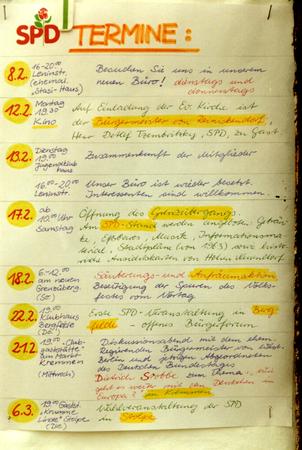 SPD TERMINE:
8.2. 16-20.00 Leninstr. (ehemal. "Stasi-Haus")
Besuchen Sie uns in unserem
neuen Büro! dienstags und
donnerstags
12.2. Montag 19.30 Kino
Auf Einladung der Ev. Kirche ist
der Bürgermeister von Reinickendorf,
Herr Detlef Dzembritzky, SPD, zu Gast.
13.2. Dienstag 19.00 Jugendklubhaus
Zusammenkunft der Mitglieder
16.00-20.00 Leninstr.
Unser Büro ist wieder besetzt.
Interessenten sind willkommen
17.2. ab 10.00 Uhr Samstag
Öffnung des Grenzübergangs
Am SPD-Stand werden
Musik, Informationsmaterial,
Ansichtskarten von Hohen Neuendorf
18.2. 6-12.00 am neuen Grenzüberg. (So)
Säuberungs- und Aufräumaktion
Beseitigung der Spuren des Volksfestes
vom Vortag
22.2. 19.00 Klubhaus Bergfelde (Do)
Erste SPD-Veranstaltung in Bergfelde
- offenes Bürgerforum
21.2. 19.00 Clubgaststätte am Markt (Mittwoch)
Diskussionsabend mit dem ehem.
Regierenden Bürgermeister von West-
Berlin und jetzigen Abgeordneten
des Deutschen Bundestages
Dietrich Stobbe zum Thema: "Wie
geht es weiter mit den Deutschen in
Europa?"
6.3. 19.00 Gastst. "Krumme Linde" Stolpe (Di)
Wahlveranstaltung der SPD
in Stolpe